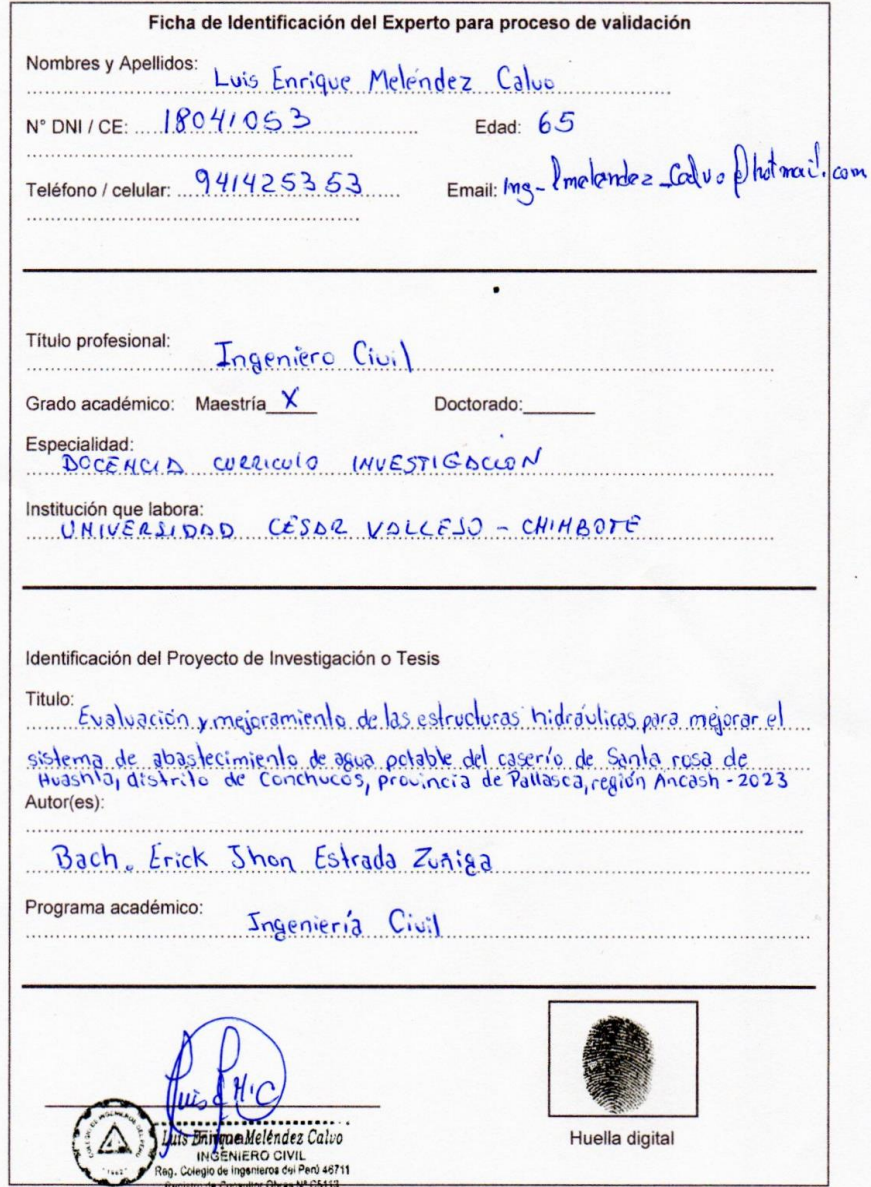 Ficha de Identificación del Experto para proceso de validación
Nombres y Apellidos:
Luis Enrique Meléndez Calvo
N° DNI / CE: 18041053 Edad: 65
Teléfono / celular: 941425353 Email: Ing-lmelendez_Calvo@hotmail.com
Título profesional:
Ingeniero Civil
Grado académico: Maestría X Doctorado:
Especialidad:
DOCENCIA CURRICULO INVESTIGACION
Institución que labora:
UNIVERSIDAD CÉSAR VALLEJO - CHIMBOTE
Identificación del Proyecto de Investigación o Tesis
Titulo:
Evaluación y mejoramiento de las estructuras hidráulicas para mejorar el
sistema de abastecimiento de agua potable del caserío de Santa rosa de
distrito de Conchucos, provincia de Pallasca, región Ancash - 2023
Autor(es):
Bach. Erick Jhon Estrada Zuñiga
Programa académico:
Ingeniería Civil
Luis Enrique Meléndez Calvo
INGENIERO CIVIL
Reg. Colegio de Ingenieros del Perú 46711
Registro de Consultor Obras Nº C5113
Huella digital